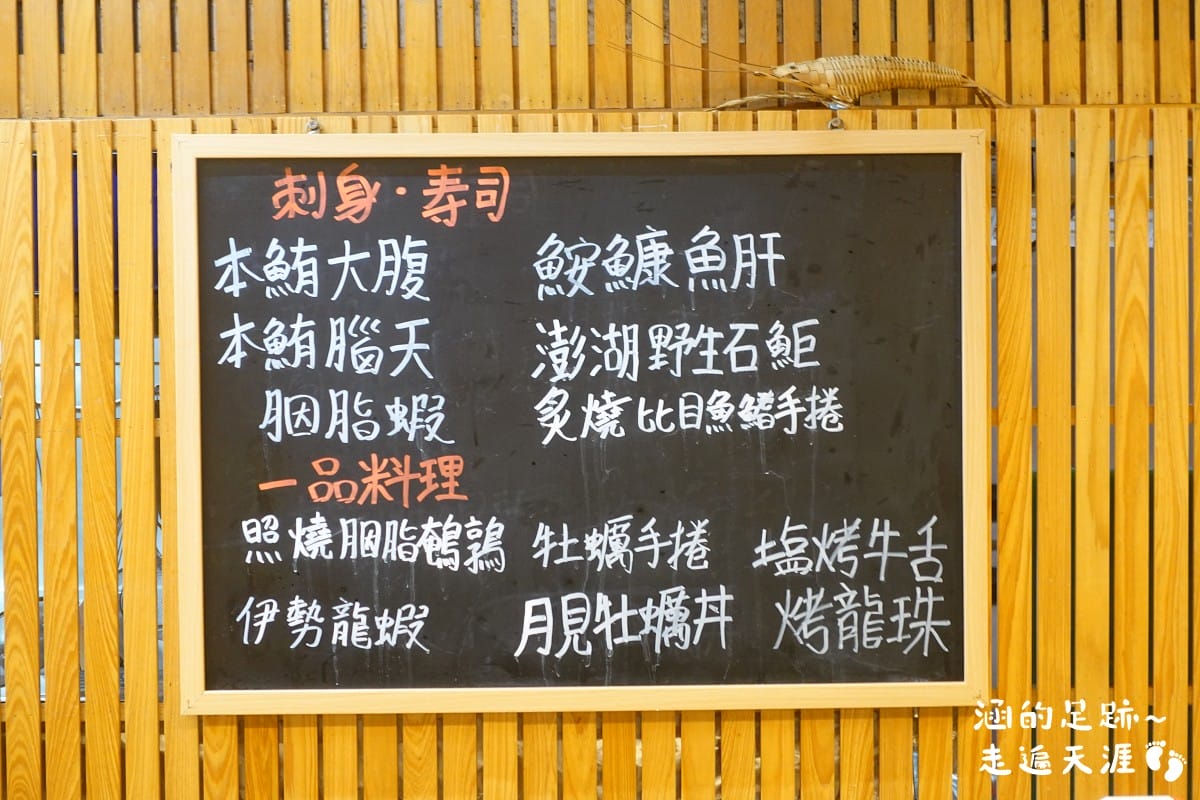 刺身·寿司
本鮪大腹 鮟鱇魚肝
本鮪腦天 澎湖野生石鮔
胭脂蝦 炙燒比目魚鰭手捲
一品料理
照燒胭脂鵪鶉 牡蠣手捲 塩烤牛舌
伊勢龍蝦 月見牡蠣丼 烤龍珠
涵的足跡~
走遍天涯